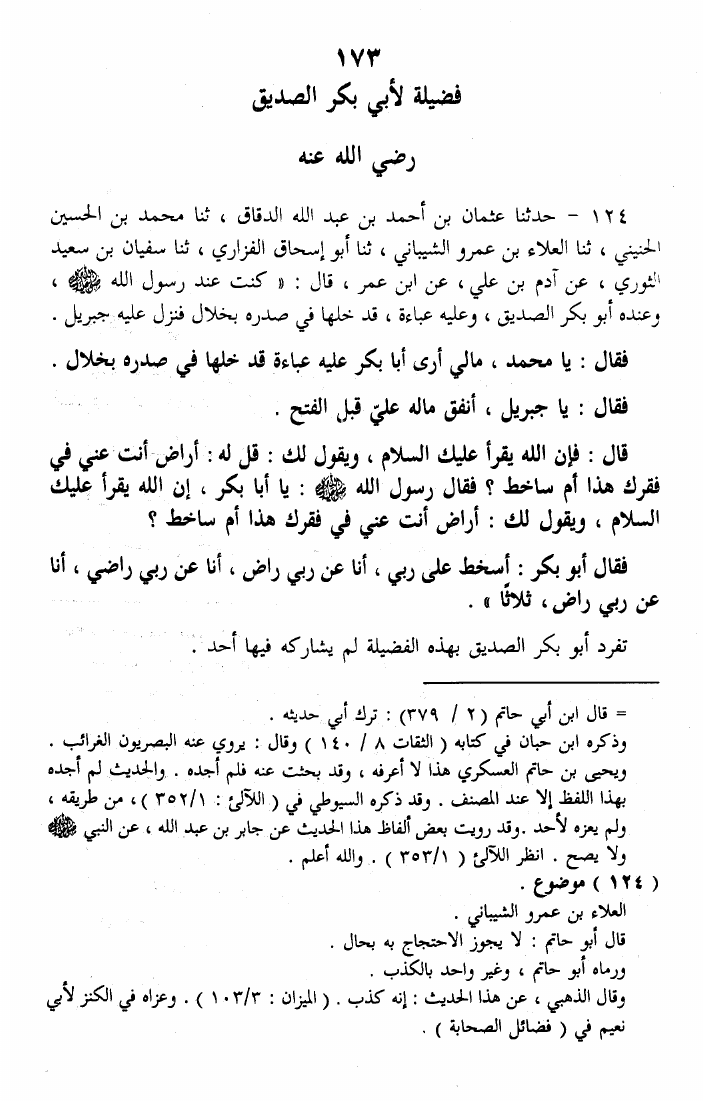 ١٧٣
فضيلة لأبي بكر الصديق
رضي الله عنه
١٢٤ - حدثنا عثمان بن أحمد بن عبد الله الدقاق ، ثنا محمد بن الحسين
الحنيني ، ثنا العلاء بن عمرو الشيباني ، ثنا أبو إسحاق الفزاري ، ثنا سفيان بن سعيد
الثوري ، عن آدم بن علي، عن ابن عمر ، قال : « كنت عند رسول الله ﷺ ،
وعنده أبو بكر الصديق ، وعليه عباءة ، قد خلها في صدره بخلال فنزل عليه جبريل .
فقال : يا محمد ، مالي أرى أبا بكر عليه عباءة قد خلها في صدره بخلال .
فقال : يا جبريل ، أنفق ماله عليّ قبل الفتح .
قال : فإن الله يقرأ عليك السلام ، ويقول لك : قل له : أراض أنت عني في
فقرك هذا أم ساخط ؟ فقال رسول الله ﷺ : يا أبا بكر ، إن الله يقرأ عليك
السلام ، ويقول لك : أراض أنت عني في فقرك هذا أم ساخط ؟
فقال أبو بكر : أسخط على ربي ، أنا عن ربي راض ، أنا عن ربي راضي ، أنا
عن ربي راض، ثلاثًا » .
تفرد أبو بكر الصديق بهذه الفضيلة لم يشاركه فيها أحد .
= قال ابن أبي حاتم (٢ / ٣٧٩) : ترك أبي حديثه .
وذكره ابن حبان في كتابه ( الثقات ٨ / ١٤٠ ) وقال : يروي عنه البصريون الغرائب .
ويحيى بن حاتم العسكري هذا لا أعرفه ، وقد بحثت عنه فلم أجده . والحديث لم أجده
بهذا اللفظ إلا عند المصنف . وقد ذكره السيوطي في ( اللآلئ : ٣٥٢/١ )، من طريقه ،
ولم يعزه لأحد .وقد رويت بعض ألفاظ هذا الحديث عن جابر بن عبد الله ، عن النبي ﷺ
ولا يصح . انظر اللآلئ ( ٣٥٣/١ ) . والله أعلم .
( ١٢٤ ) موضوع .
العلاء بن عمرو الشيباني .
قال أبو حاتم : لا يجوز الاحتجاج به بحال .
ورماه أبو حاتم ، وغير واحد بالكذب .
وقال الذهبي ، عن هذا الحديث : إنه كذب . ( الميزان : ١٠٣/٣ ) . وعزاه في الكنز لأبي
نعيم في ( فضائل الصحابة ) .